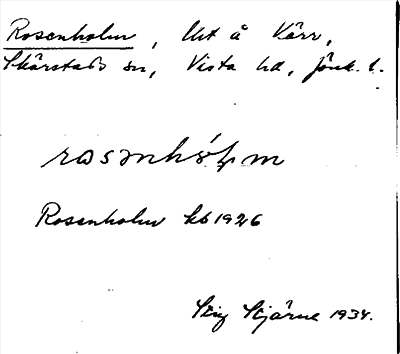 Rosenholm, Ut å Kärr,
Skärstads sn, Vista hd, Jönk. l.
rosənhól̥m
Rosenholm kb 1926
Stig Stjärne 1934.